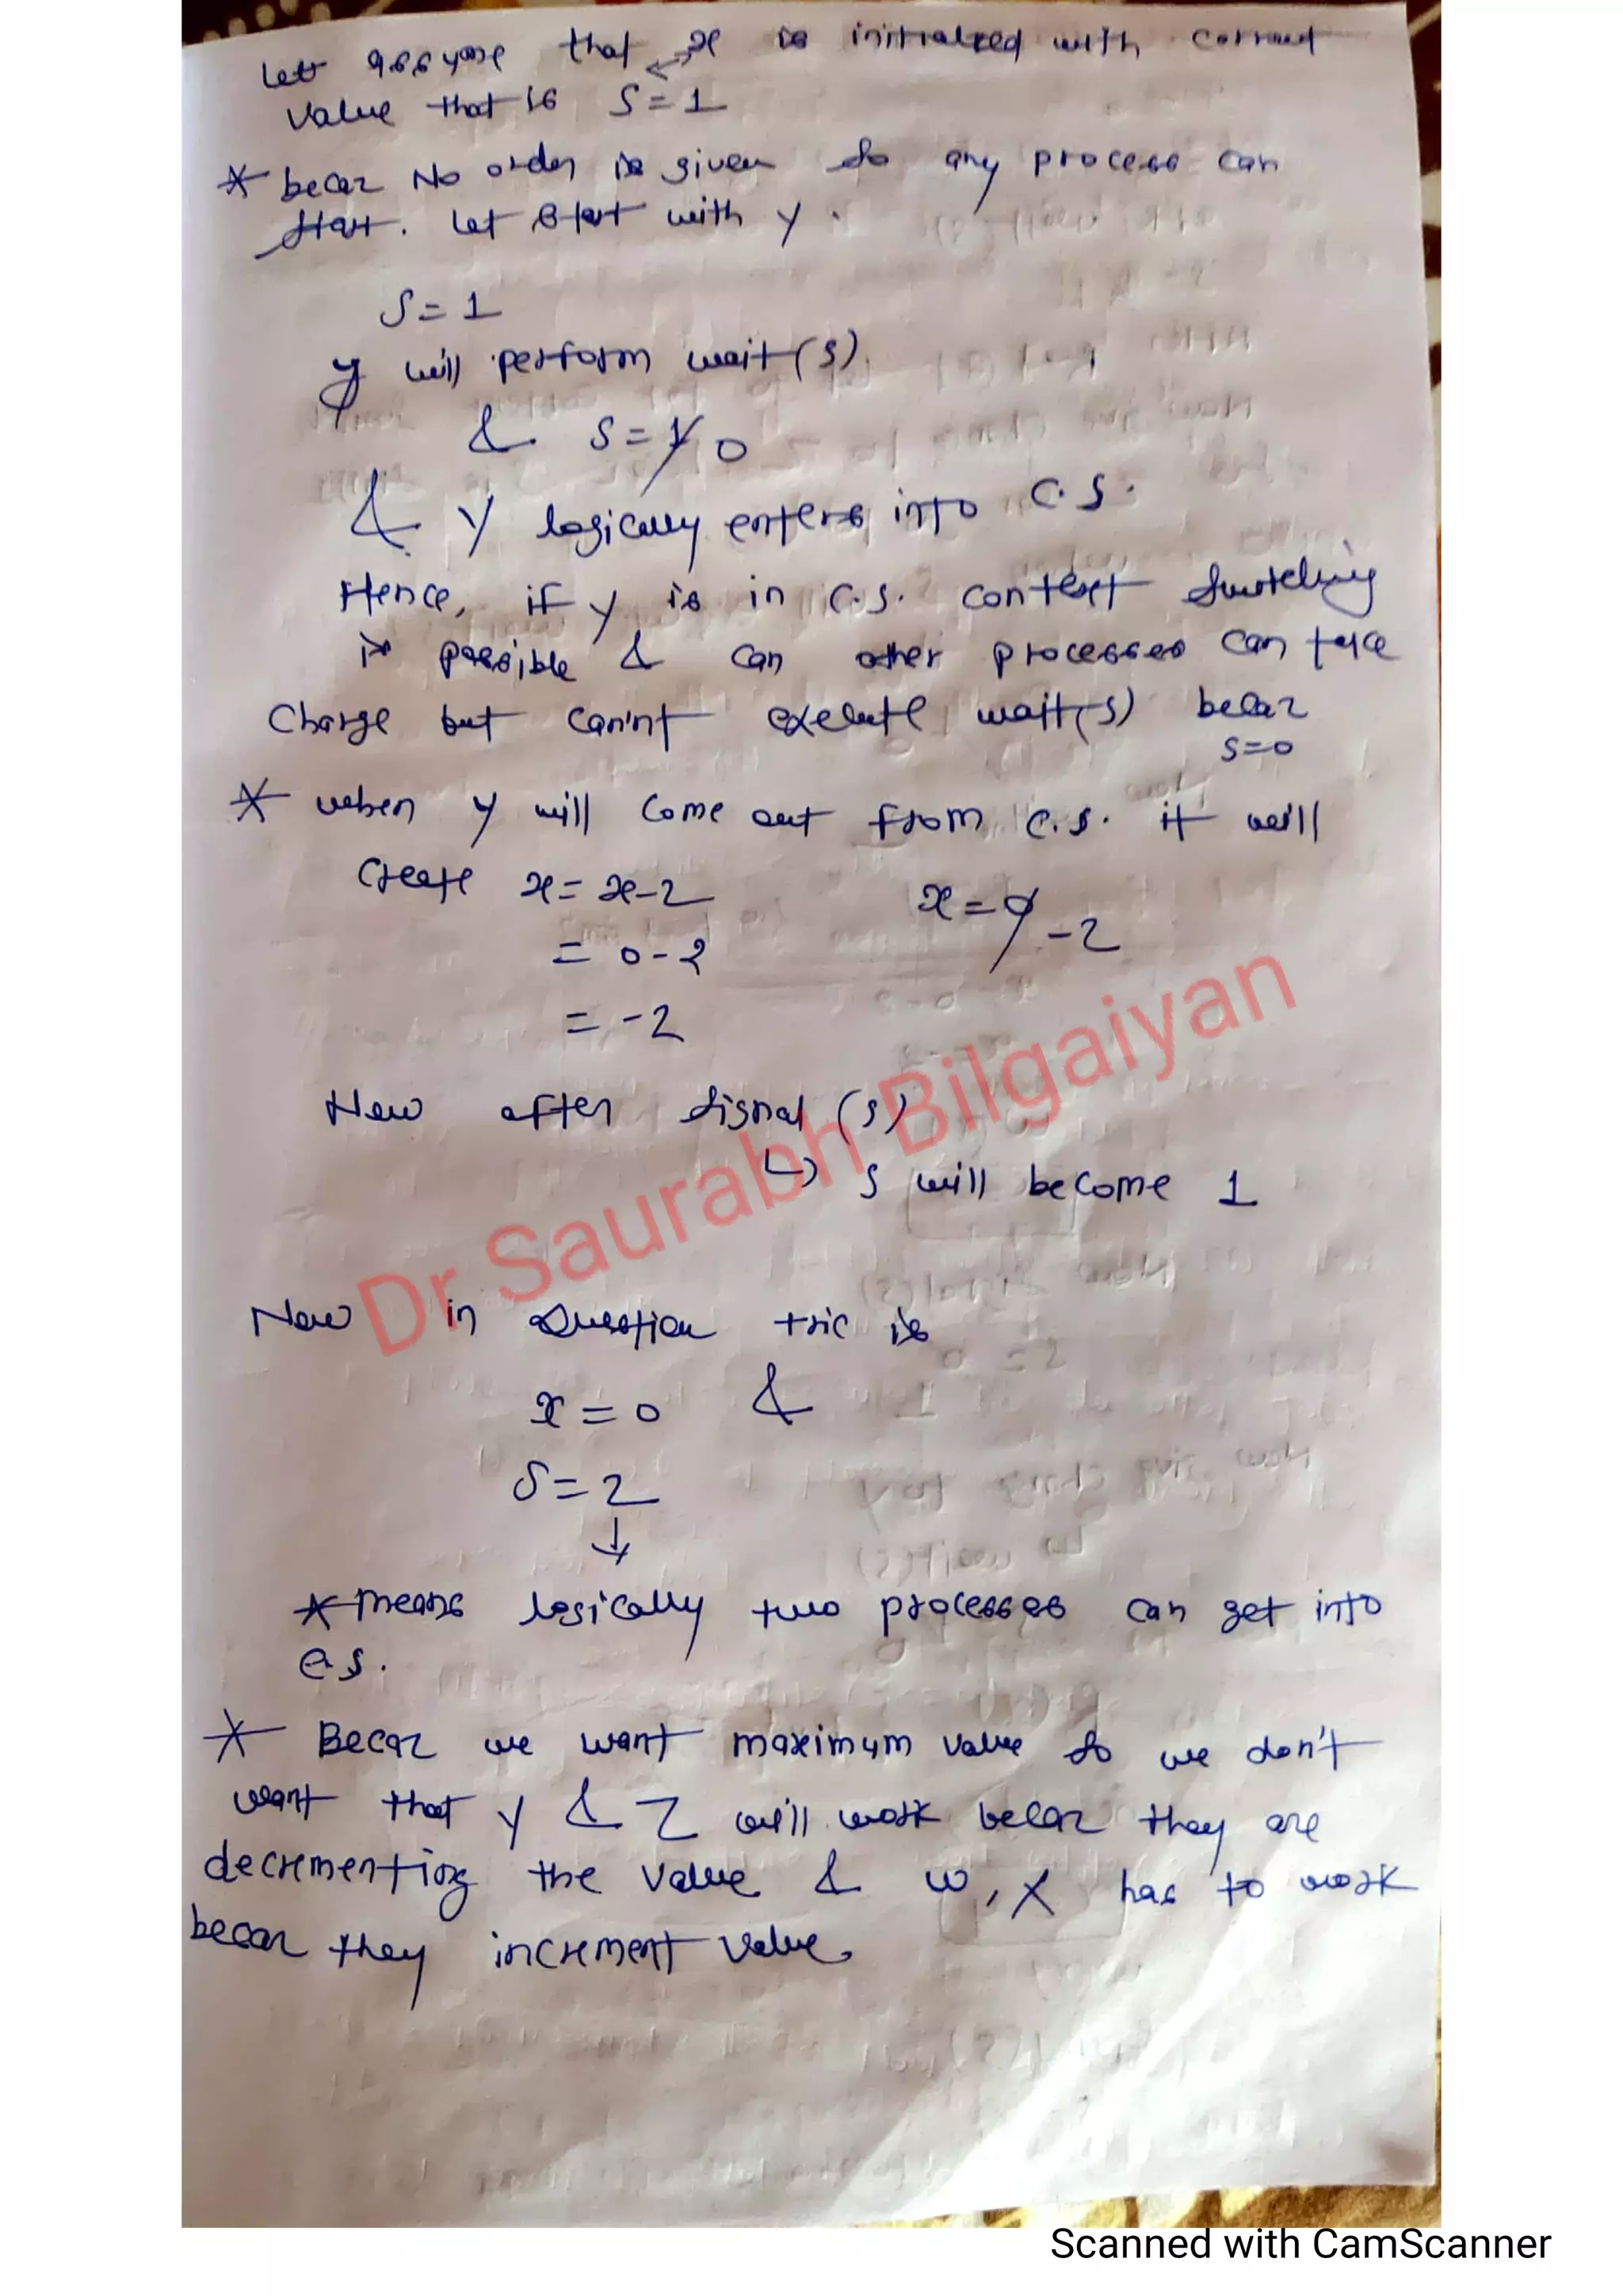 Let assume that x is initialized with correct
value that is S=1
* becoz No order is given so any process can
start. Let start with y.
S=1
y will perform wait(s)
& S=1 0
& y logically enters into C.S.
Hence, if y is in C.S. context switching
is possible & can other processes can take
charge but can'nt execute wait(s) becoz
S=0
* when y will come out from C.S. it will
create x=x-2 x=0 -2
= 0-2
= -2
Now after signal (s)
↳ S will become 1
Dr Saurabh Bilgaiyan
Now in Question tric is
x=0 &
S=2
↓
* means logically two processes can get into
C.S.
* Becoz we want maximum value so we don't
want that y & Z will work becoz they are
decrementing the value & W, X has to work
becoz they increment value.
Scanned with CamScanner